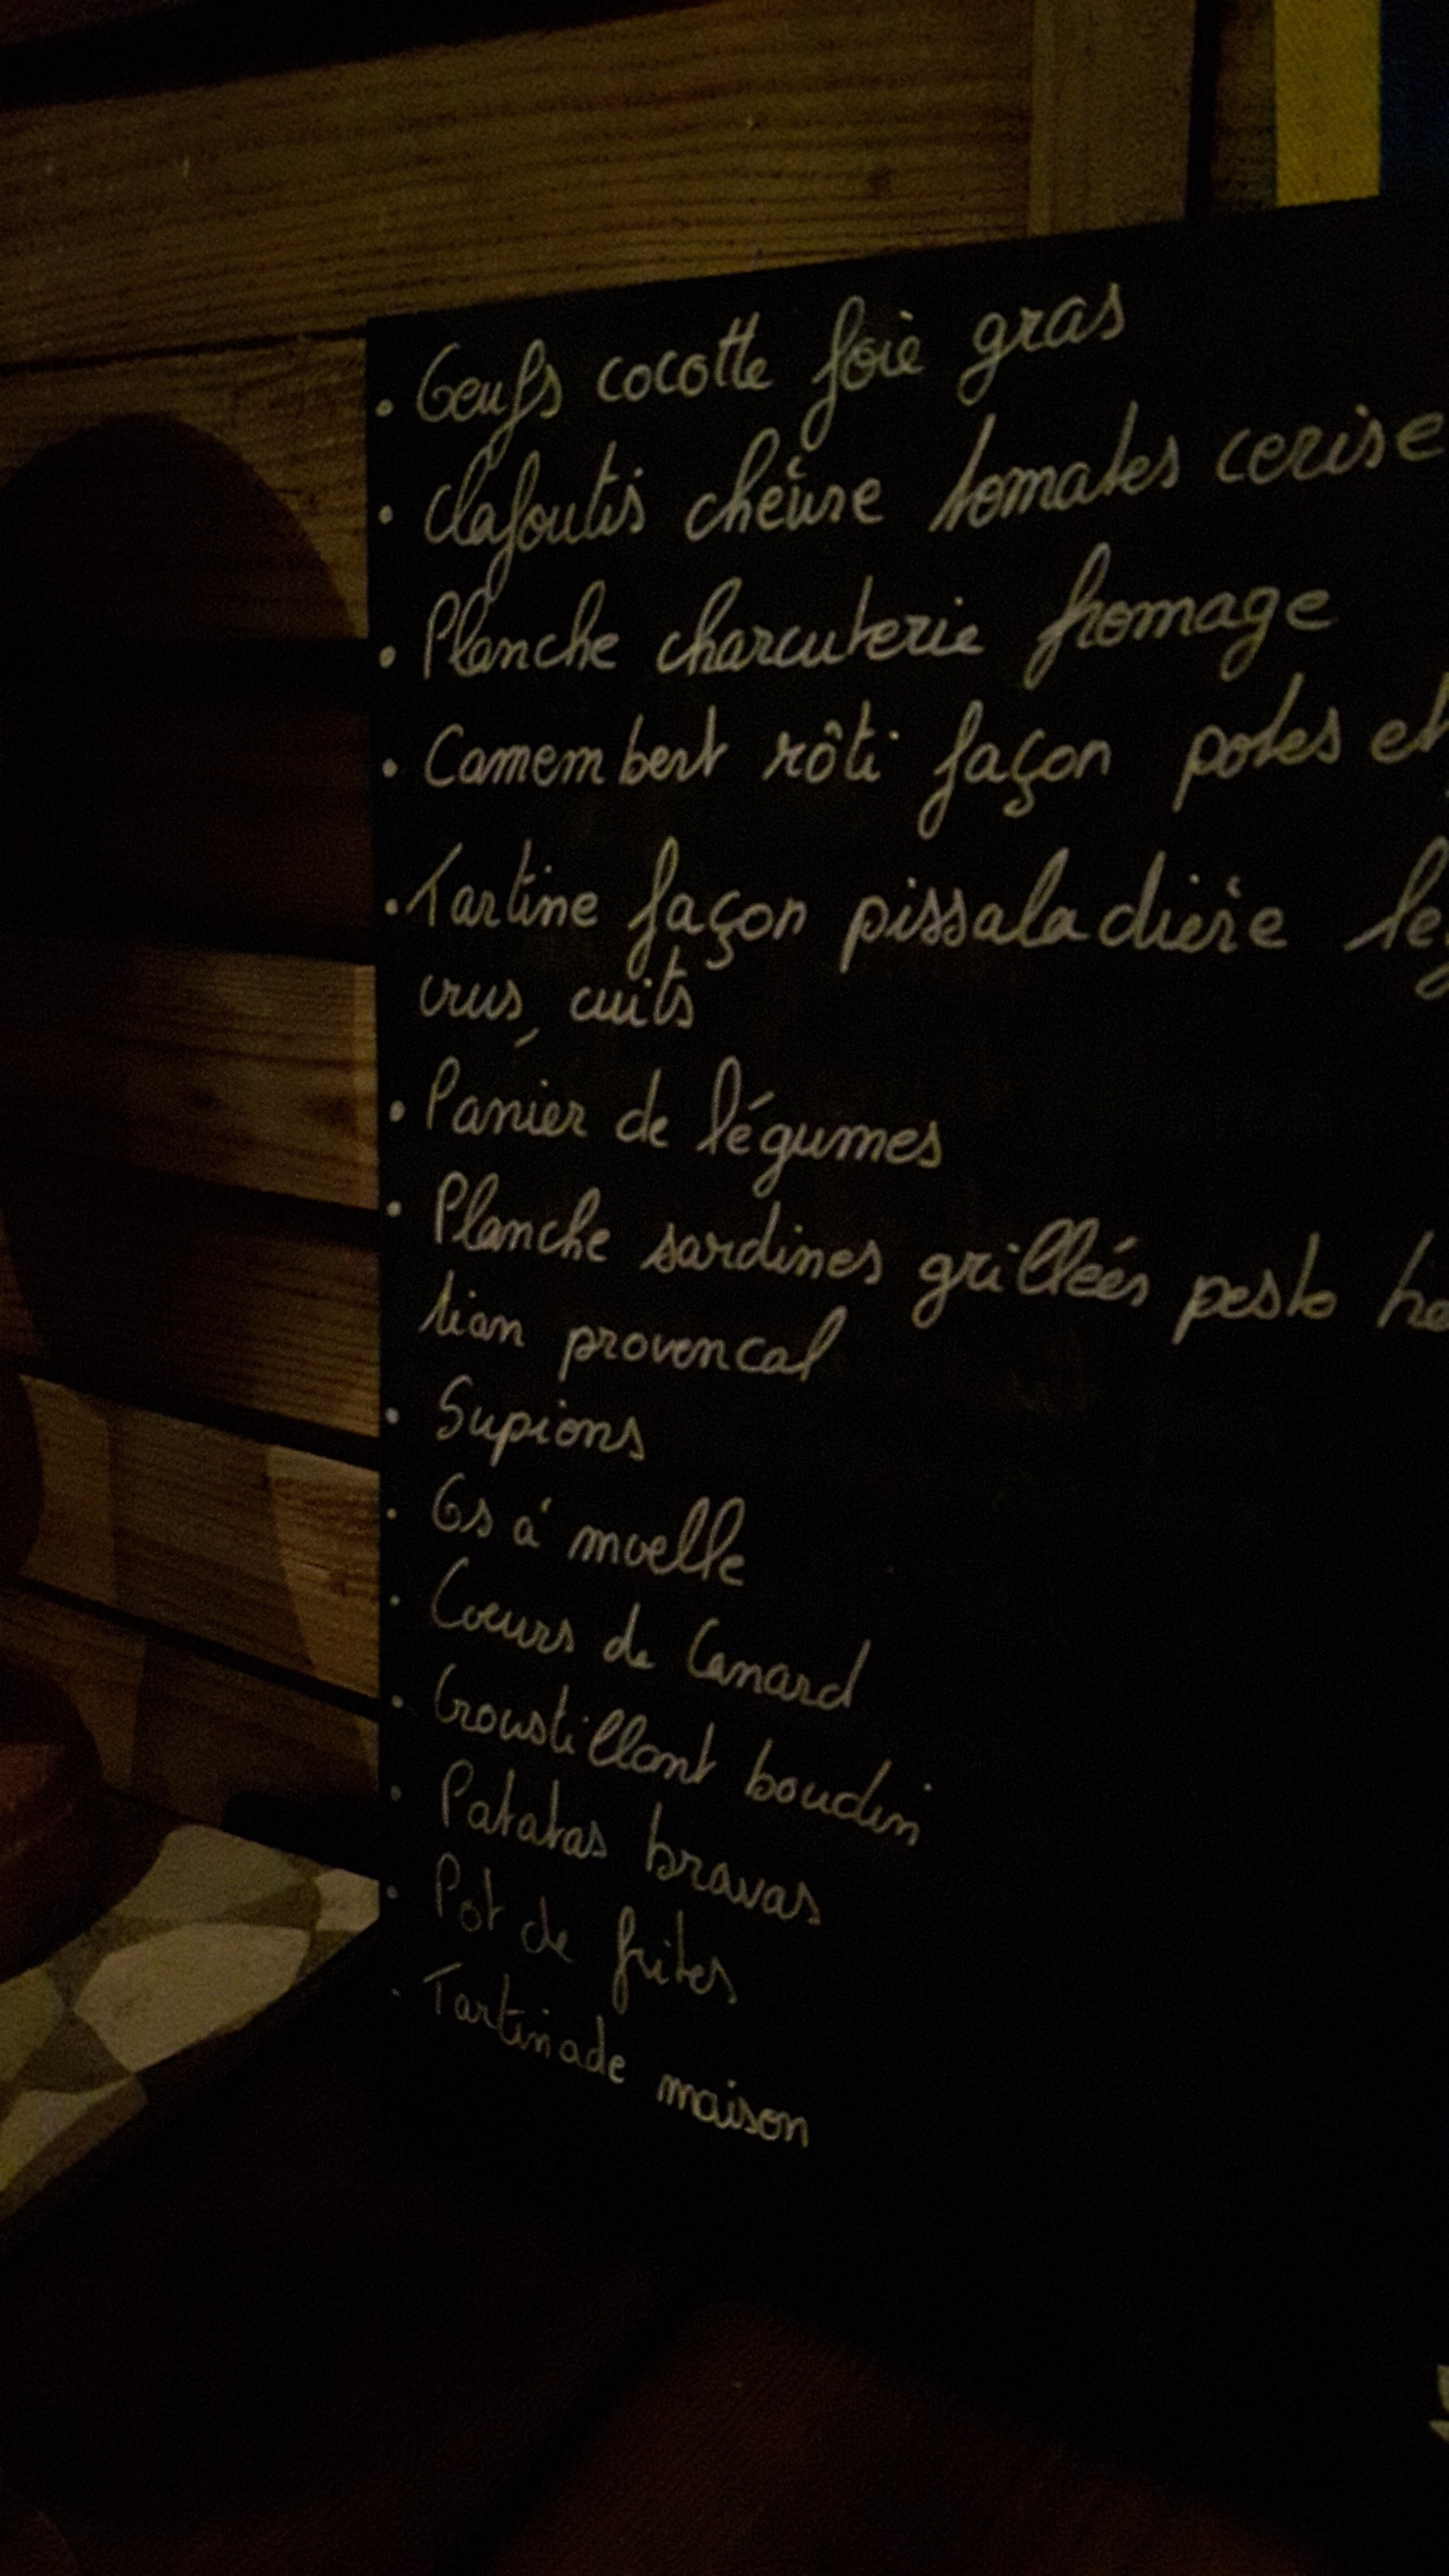 . Oeufs cocotte foie gras
. Clafoutis chèvre tomates cerise
. Planche charcuterie fromage
. Camembert rôti façon potes et
. Tartine façon pissaladière
crus, cuits
. Panier de légumes
. Planche sardines grillées pesto
tian provencal
. Supions
. Os à moelle
. Coeurs de Canard
. Croustillant boudin
. Patatas bravas
. Pot de frites
. Tartinade maison